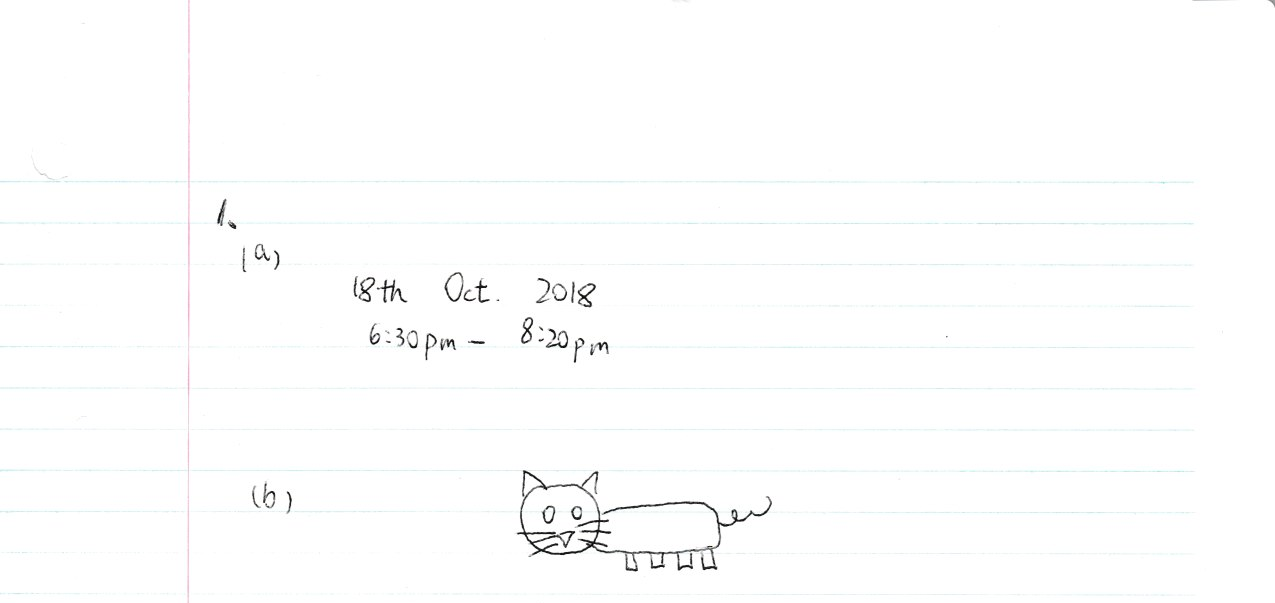 1.
(a)
18th Oct. 2018
6:30pm - 8:20pm
(b)